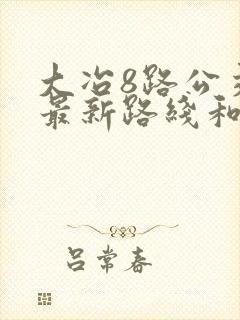 大冶8路公交
最新路线和
吕常春